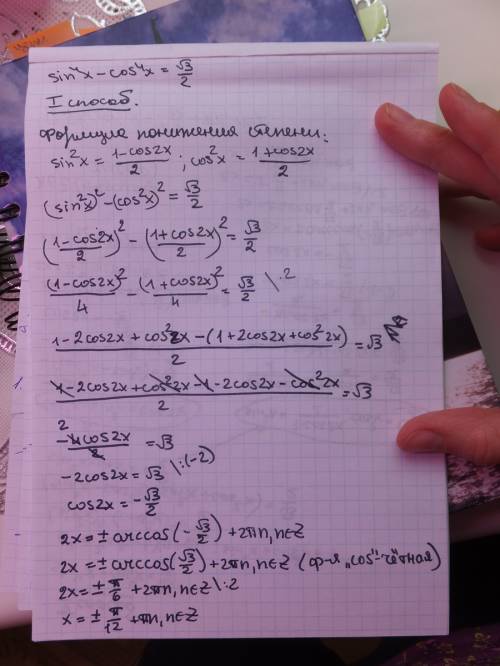 sin⁴x – cos⁴x = √3/2
I способ.
Формула понижения степени:
sin²x = (1-cos2x)/2 ; cos²x = (1+cos2x)/2
(sin²x)² - (cos²x)² = √3/2
((1-cos2x)/2)² - ((1+cos2x)/2)² = √3/2
(1-cos2x)²/4 - (1+cos2x)²/4 = √3/2 \·2
(1-2cos2x+cos²2x-(1+2cos2x+cos²2x))/2 = √3
(1-2cos2x+cos²2x-1-2cos2x-cos²2x)/2 = √3
2
-4cos2x/2 = √3
-2cos2x = √3 \:(-2)
cos2x = -√3/2
2x = ± arccos(-√3/2) + 2πn, n∈Z
2x = ± arccos(√3/2) + 2πn, n∈Z (ф-я "cos"-чётная)
2x = ± π/6 + 2πn, n∈Z \:2
x = ± π/12 + πn, n∈Z